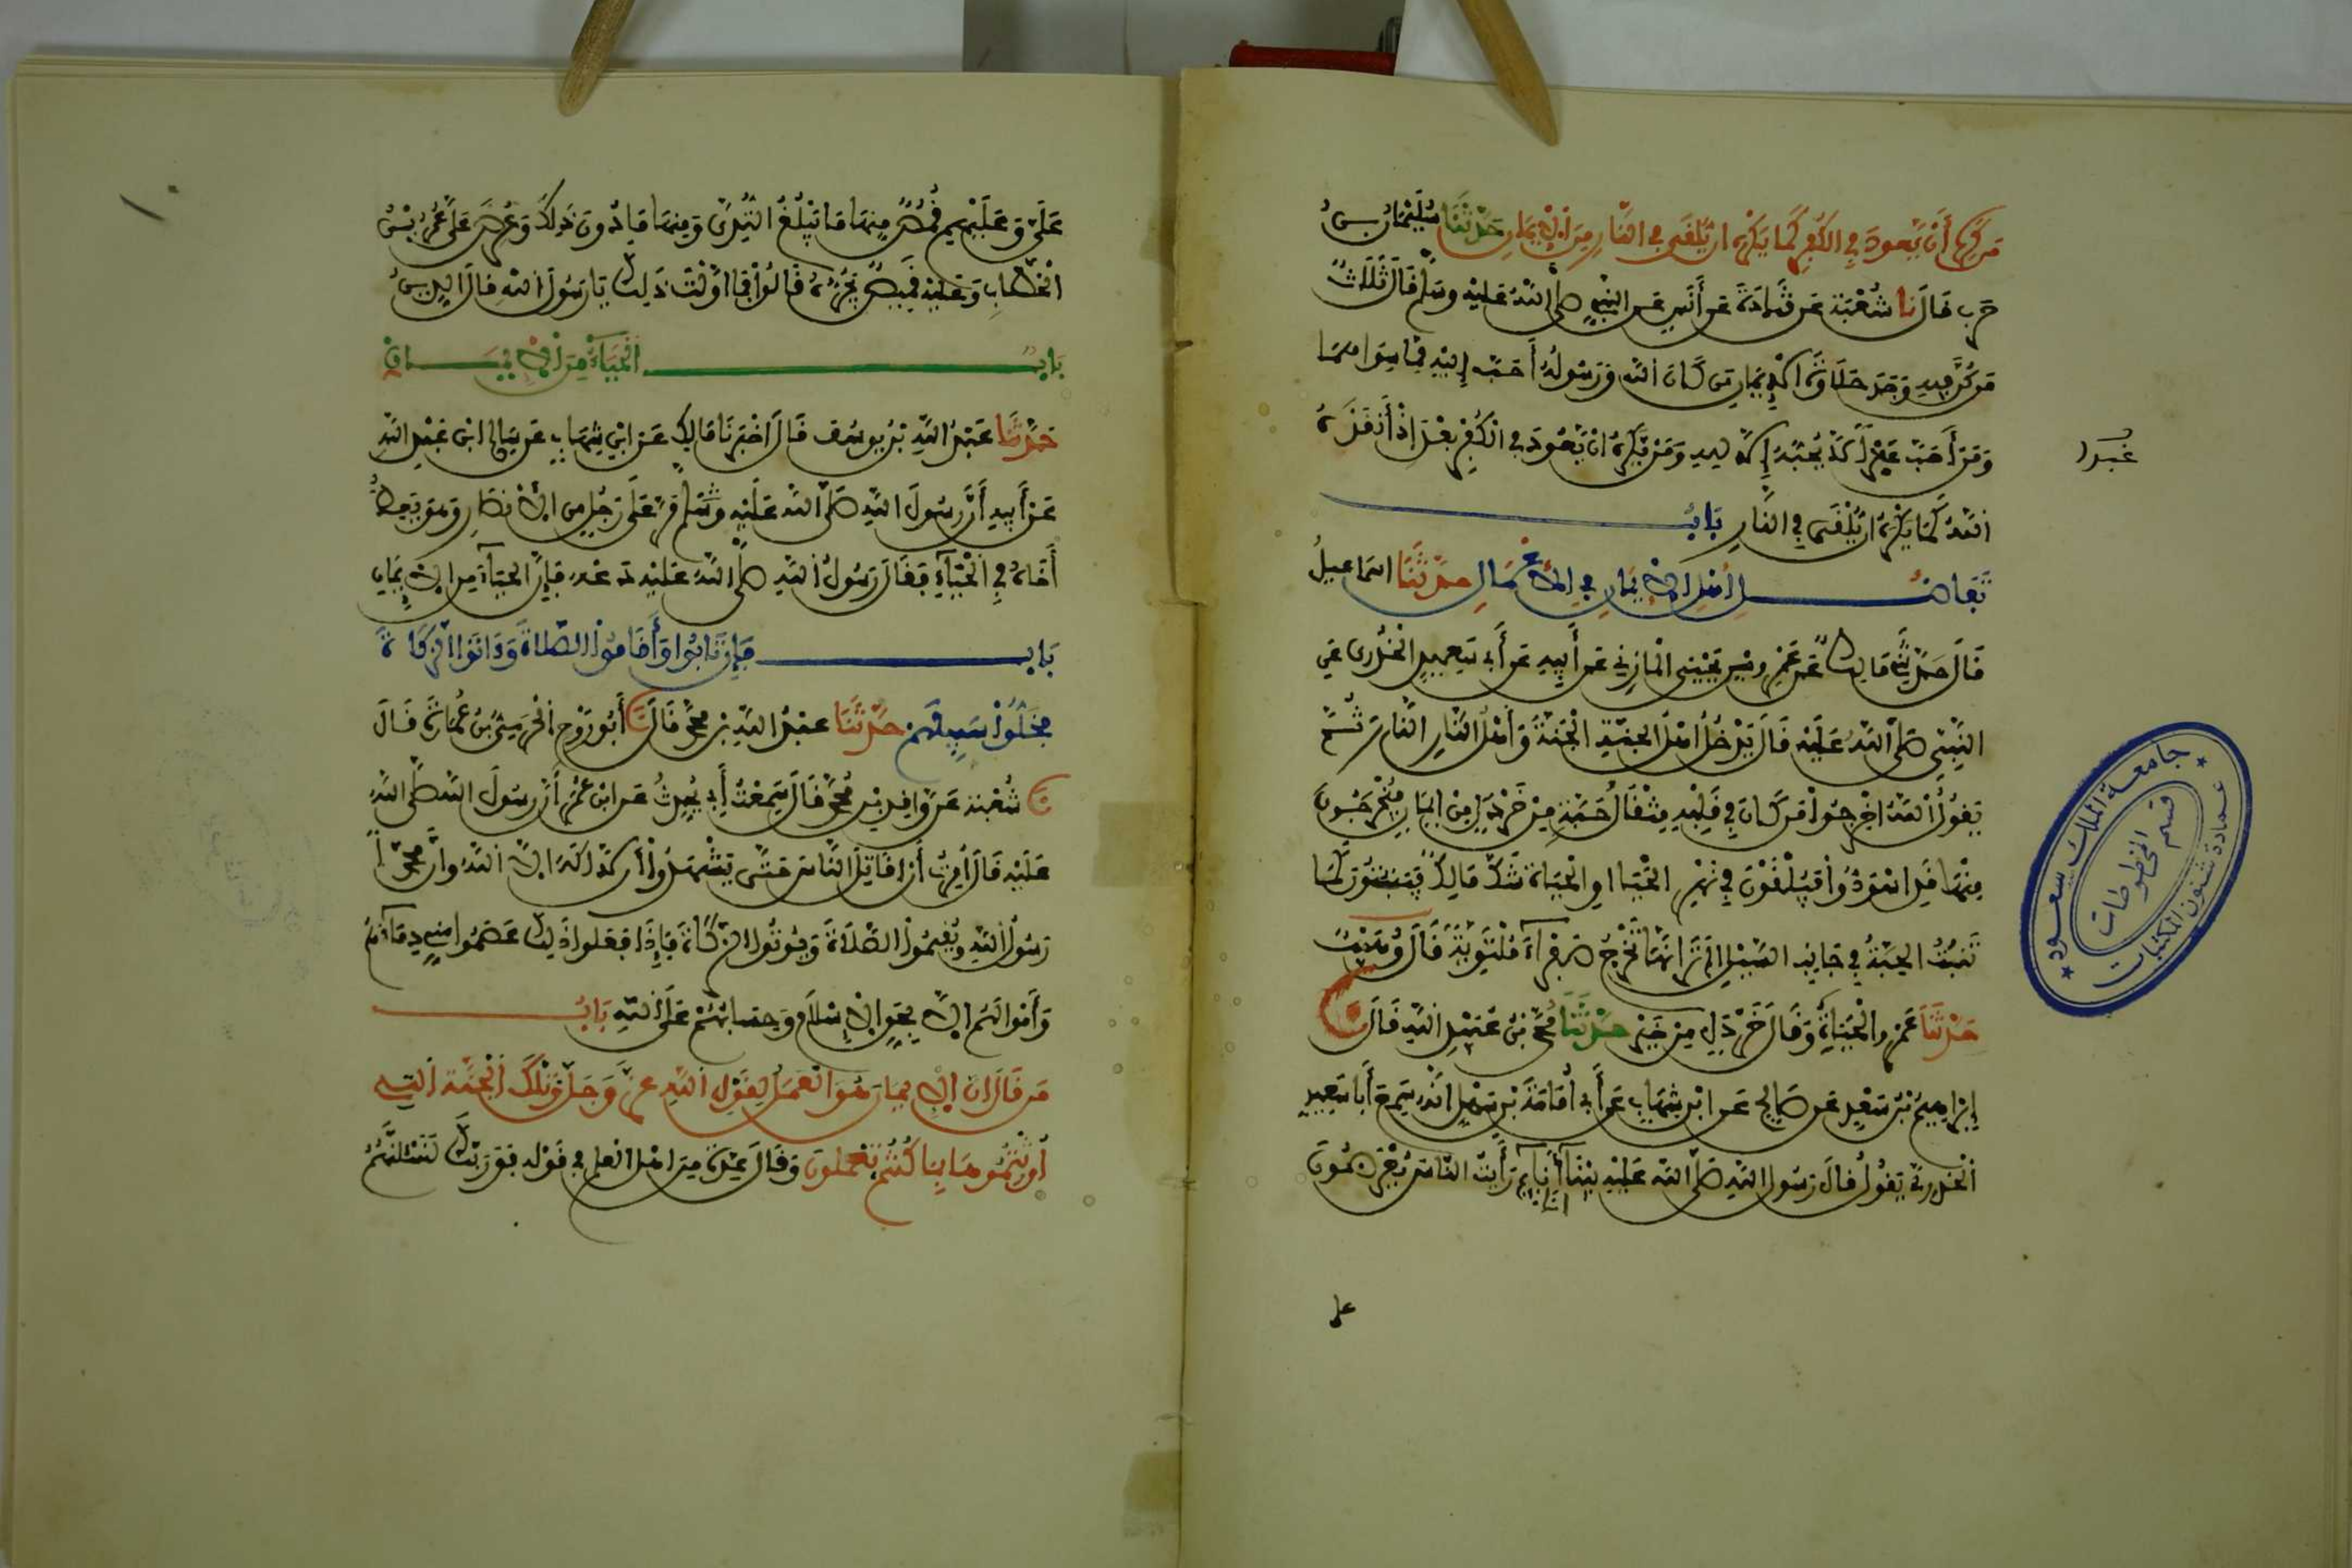 مَن كَرِهَ أَنْ يَّعودَ فِي الكُفرِ كَمَا يَكْرَهُ ان يُّلْقَى فِي النَّارِ مِنَ الإيمَانِ حَدَّثَنَا سُلَيْمَانُ بنُ
حَرب قالَ نا شُعْبَة عَن قَتَادَةَ عَن أَنَسٍ عَن النبيِّ صلى اللهُ عليهِ وسلم قَالَ ثَلَاثٌ
مَن كُنَّ فيهِ وَجَدَ حَلَاوَةَ الإيمَانِ مَن كَانَ اللهُ وَرَسُولُهُ أَحَبَّ إِلَيْهِ مِمَّا سِوَاهُمَا
وَمَنْ أَحَبَّ عَبْدًا لَا يُحِبُّهُ إِلَّا للهِ وَمَنْ يَّكْرَهُ انْ يَّعُودَ فِي الكُفْرِ بَعْدَ إِذْ أَنقَذَهُ
عَبْدا
اللهُ كَمَا يَكْرَهُ ان يُّلْقَى فِي النَّارِ بَابُ
تَفَاضُلِ أَهْلِ الإيمَانِ فِي الأَعْمَالِ حَدَّثَنَا اسْمَاعِيلُ
قَالَ حَدَّثَنِي مَالِكٌ عَن عَمْرِو بْنِ يَحْيَى المَازِنِي عَن أَبِيهِ عَن أَبِي سَعِيدٍ الخُدْرِي عَنِ
النَّبِيِّ صَلَّى اللهُ عَلَيْهِ قَالَ يَدْخُلُ أَهْلُ الجَنَّةِ الجَنَّةَ وَأَهْلُ النَّارِ النَّارَ ثُمَّ
يَقُولُ اللهُ اخْرِجُوا مَن كَانَ فِي قَلْبِهِ مِثْقَالُ حَبَّةٍ مِنْ خَرْدَلٍ مِنْ إيمَانٍ فَيُخْرَجُونَ
مِنْهَا قَدِ اسْوَدُّوا فَيُلْقَوْنَ فِي نَهْرِ الحَيَا اوِ الحَيَاةِ شَكَّ مَالِكٌ فَيَنبُتُونَ كَمَا
تَنبُتُ الحِبَّةُ فِي جَانِبِ السَّيْلِ أَلَمْ تَرَ أَنَّهَا تَخْرُجُ صَفْرَاءَ مُلْتَوِيَةً قَالَ وُهَيْبٌ
حَدَّثَنَا عَمْرٌو الحَيَاةِ وَقَالَ خَرْدَلٍ مِنْ خَيْرٍ حَدَّثَنَا مُحَمَّدُ بْنُ عُبَيْدِ اللهِ قَالَ نا
إِبْرَاهِيمُ بْنُ سَعْدٍ عَن صَالِحٍ عَن ابْنِ شِهَابٍ عَن أَبِي أُمَامَةَ بْنِ سَهْلٍ أَنَّهُ سَمِعَ أَبَا سَعِيدٍ
الخُدْرِيَّ يَقُولُ قَالَ رَسُولُ اللهِ صَلَّى اللهُ عَلَيْهِ بَيْنَا أَنَا نَايِمٌ رَأَيْتُ النَّاسَ يُعْرَضُونَ
على
جامعة الملك سعود
عمادة شئون المكتبات
قسم المخطوطات
عَلَيَّ وَعَلَيْهِم قُمُصٌ مِنهَا مَا يَبْلُغُ الثُّدِيَّ وَمِنهَا مَا دُونَ ذَلِكَ وَعُرِضَ عَلَيَّ عُمَرُ بْنُ
الخَطَّابِ وَعَلَيْهِ قَمِيصٌ يَجُرُّهُ قَالُوا فَمَا أَوَّلْتَ ذَلِكَ يَا رَسُولَ اللهِ قَالَ الدِّينُ
بَابٌ الحَيَاءُ مِنَ الإيمَانِ
حَدَّثَنَا عَبْدُ اللهِ بْنُ يُوسُفَ قَالَ اخْبَرَنَا مَالِكٌ عَن ابْنِ شِهَابٍ عَن سَالِمِ ابْنِ عَبْدِ اللهِ
عَن أَبِيهِ أَنَّ رَسُولَ اللهِ صَلَّى اللهُ عَلَيْهِ وَسَلَّمَ مَرَّ عَلَى رَجُلٍ مِنَ الأَنْصَارِ وَهُوَ يَعِظُ
أَخَاهُ فِي الحَيَاءِ فَقَالَ رَسُولُ اللهِ صلى اللهُ عَلَيْهِ دَعْهُ فَإِنَّ الحَيَاءَ مِنَ الإيمَانِ
بَابٌ فَإِن تَابُوا وَأَقَامُوا الصَّلَاةَ وَءَاتَوُا الزَّكَاةَ
فَخَلُّوا سَبِيلَهُمْ حَدَّثَنَا عبْدُ اللهِ بْنُ مُحَمَّدٍ قَالَ نَا أَبُو رَوْحٍ الْحَرَمِيُّ بْنُ عُمَارَةَ قَالَ
نا شُعْبَةُ عَنْ وَاقِدِ بْنِ مُحَمَّدٍ قَالَ سَمِعْتُ أَبِي يُحَدِّثُ عَن ابْنِ عُمَرَ أَنَّ رَسُولَ اللهِ صلى اللهُ
عَلَيْهِ قَالَ أُمِرْتُ أَنْ أُقَاتِلَ النَّاسَ حَتَّى يَشْهَدُوا أَن لَّا إِلَهَ الَّا اللهُ وَأَنَّ مُحَمَّدًا
رَسُولُ اللهِ وَيُقِيمُوا الصَّلَاةَ وَيُوتُوا الزَّكَاةَ فَإِذَا فَعَلُوا ذَلِكَ عَصَمُوا مِنِّي دِمَاءَهُمْ
وَأَمْوَالَهُم الَّا بِحَقِّ الإسْلَامِ وَحِسَابُهُمْ عَلَى اللهِ بَابُ
مَن قَالَ إنَّ الإيمَانَ هُوَ العَمَلُ لِقَوْلِ اللهِ عزَّ وَجَلَّ وَتِلْكَ الجَنَّةُ التِي
أُورِثْتُمُوهَا بِمَا كُنتُمْ تَعْمَلُونَ وَقَالَ عِدَّةٌ مِنَ اهْلِ العِلمِ فِي قَوْلِهِ فَوَرَبِّكَ لَنَسْئَلَنَّهُمُ